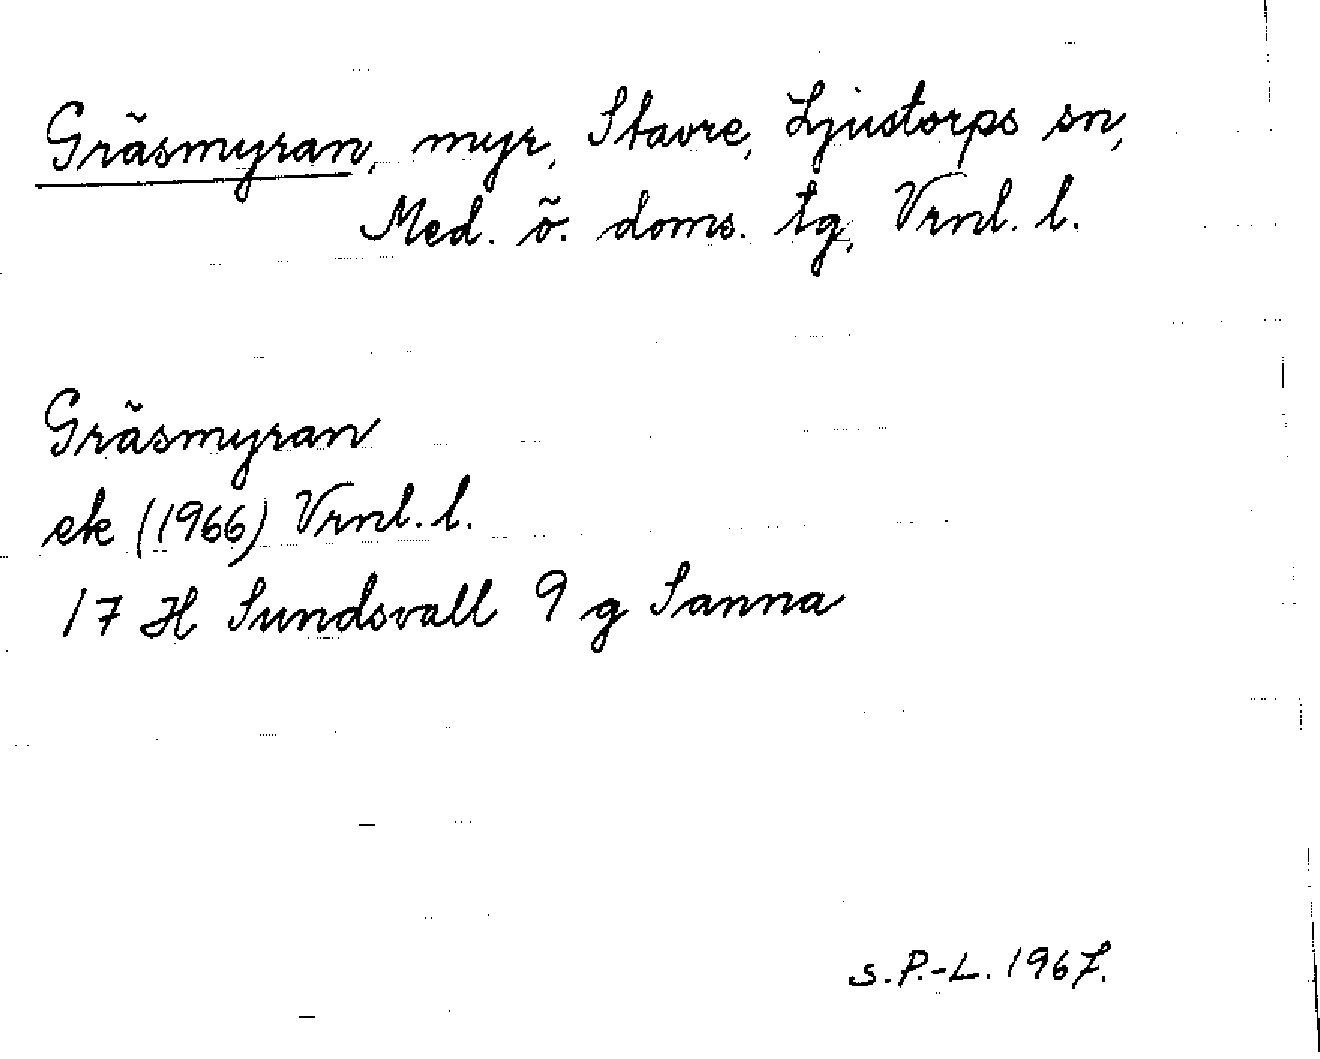 Gräsmyran, myr, Stavre, Ljustorps sn,
Med. ö. doms. tg, Vrnl. l.
Gräsmyran
ek (1966) Vrnl. l.
17 H Sundsvall 9 g Sanna
S.P.-L. 1967.